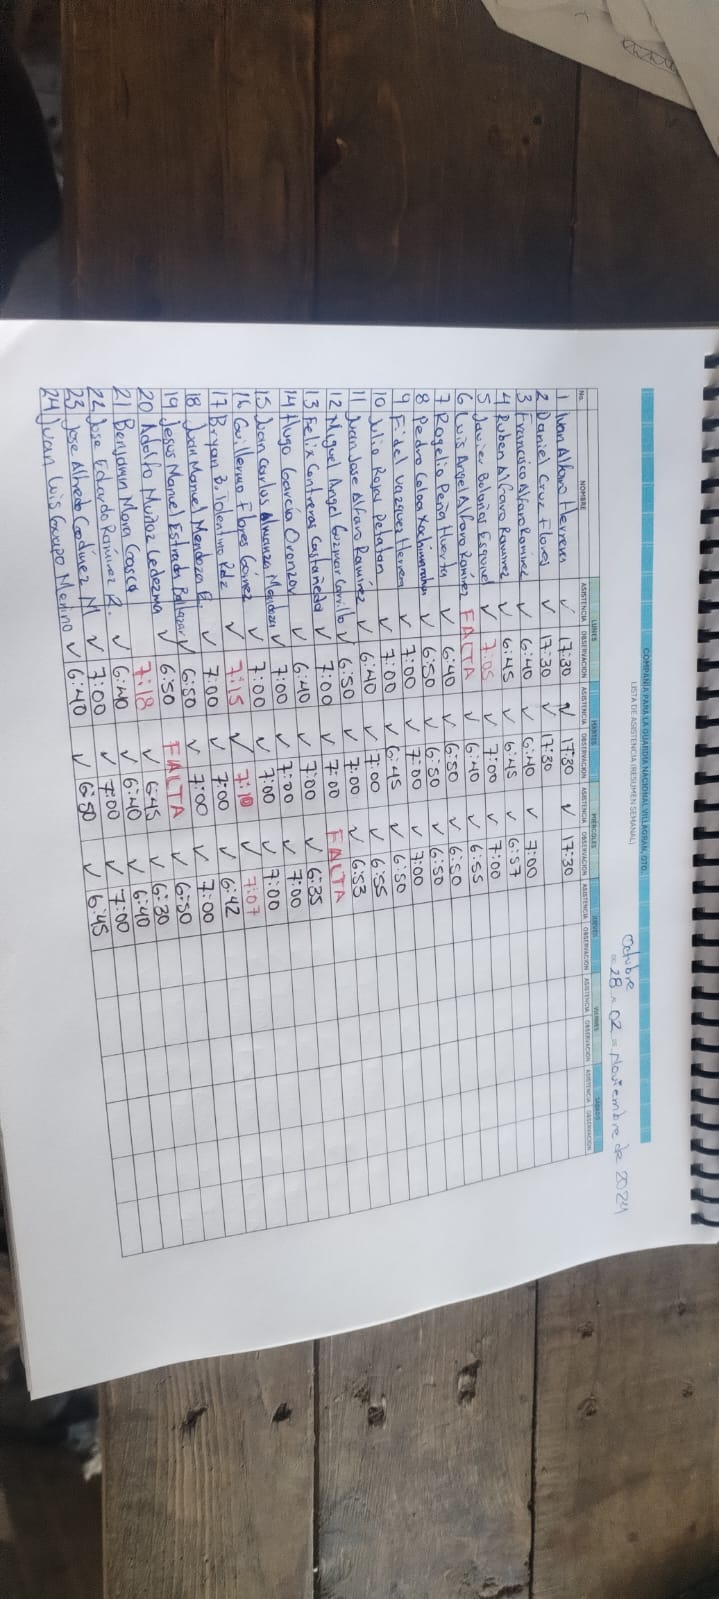 COMPAÑIA PARA LA GUARDIA NACIONAL VILLAGRAN, GTO.
LISTA DE ASISTENCIA (RESUMEN SEMANAL)
Octubre
28 02 Noviembre de 2024
LUNES MARTES MIERCOLES JUEVES VIERNES SABADO
No. NOMBRE ASISTENCIA OBSERVACION ASISTENCIA OBSERVACION ASISTENCIA OBSERVACION ASISTENCIA OBSERVACION ASISTENCIA OBSERVACION ASISTENCIA OBSERVACION
1 Ivan Alfaro Herrera ✓ 17:30 ✓ 17:30 ✓ 17:30
2 Daniel Cruz Flores ✓ 17:30 ✓ 17:30
3 Francisco Alfaro Ramirez ✓ 6:40 ✓ 6:40 ✓ 7:00
4 Ruben Alfaro Ramirez ✓ 6:45 ✓ 6:45 ✓ 6:57
5 Javier Bolaños Esquivel ✓ 7:05 ✓ 7:00 ✓ 7:00
6 Luis Angel Alfaro Ramirez FALTA ✓ 6:40 ✓ 6:55
7 Rogelio Peña Huerta ✓ 6:40 ✓ 6:50 ✓ 6:50
8 Pedro Coloa ✓ 6:50 ✓ 6:50 ✓ 6:50
9 Fidel Vazquez Herrera ✓ 7:00 ✓ 7:00 ✓ 7:00
10 Julio Rojas Petatan ✓ 7:00 ✓ 6:45 ✓ 6:50
11 Juan Jose Alfaro Ramirez ✓ 6:40 ✓ 7:00 ✓ 6:55
12 Miguel Angel Guzman Carrillo ✓ 6:50 ✓ 7:00 ✓ 6:53
13 Felix Contreras Castañeda ✓ 7:00 ✓ 7:00 FALTA
14 Hugo García Oronzor ✓ 6:40 ✓ 7:00 ✓ 6:35
15 Juan Carlos Almanza Mendoza ✓ 7:00 ✓ 7:00 ✓ 7:00
16 Guillermo Flores Gómez ✓ 7:00 ✓ 7:00 ✓ 7:00
17 Bryan B. Tolentino Rdz ✓ 7:15 ✓ 7:10 ✓ 7:07
18 Juan Manuel Mendoza R. ✓ 7:00 ✓ 7:00 ✓ 6:42
19 Jesus Manuel Estrada Baltazar ✓ 6:50 ✓ 7:00 ✓ 7:00
20 Adolfo Muñoz Ledezma ✓ 6:50 FALTA ✓ 6:50
21 Benjamin Mora Gasca 7:18 ✓ 6:45 ✓ 6:30
22 Jose Eduardo Ramirez R. ✓ 6:40 ✓ 6:40 ✓ 6:40
23 Jose Alfredo Godinez M ✓ 7:00 ✓ 7:00 ✓ 7:00
24 Juan Luis Guapo Merino ✓ 6:40 ✓ 6:50 ✓ 6:45